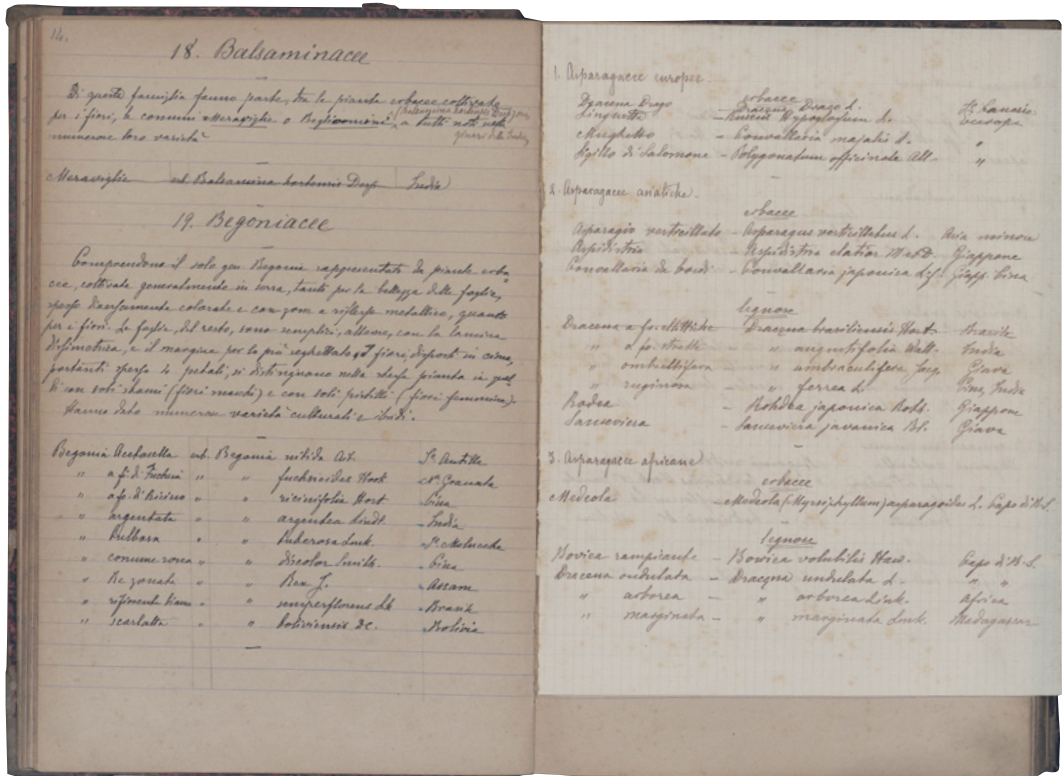 14.
18. Balsaminacee
Di questa famiglia fanno parte, tra le piante erbacee coltivate
per i fiori, le comuni Meraviglie o Begliomini, (Balsamina hortensis Desp) ori-
ginari delle Indie, a tutti noti nelle
numerose loro varietà
Meraviglie erb. Balsamina hortensis Desp India
19. Begoniacee
Comprendono il solo gen. Begonia rappresentato da piante erba
cee, coltivate generalmente in serra, tanto per la bellezza delle foglie,
spesso diversamente colorate e con riflesso metallico, quanto
per i fiori. Le foglie, del resto, sono semplici, alterne, con la lamina
disimetrica, e il margine per lo più seghettato. I fiori, disposti in cime,
portanti spesso 4 petali, si distinguono nella stessa pianta in
di con soli stami (fiori maschi) e con soli pistilli (fiori femminei).
Hanno dato numerose varietà culturali e ibridi.
Begonia Acetosella erb. Begonia nitida Ait. Is. Antille
" a fi. di Fuchsia " " fuchsioides Hook Na. Granata
" a fo. di Ricino " " ricinifolia Hort Cina
" argentata " " argentea Lindl. India
" bulbosa " " tuberosa Lmk. Is. Molucche
" comune rossa " " discolor Smith. Cina
" Re zonata " " Rex J. Assam
" rifiorente bianca " " semperflorens Lk Brasile
" scarlatta " " boliviensis DC. Bolivia
1. Asparagacee europee.
erbacee
Dracena Drago - Dracaena Drago L. Is. Canarie
Linguetta - Ruscus Hypoglossum L. Europa
Mughetto - Convallaria majalis L. "
Sigillo di Salomone - Polygonatum officinale All. "
2. Asparagacee asiatiche.
erbacee
Asparagio verticillato - Asparagus verticillatus L. Asia minore
Aspidistria - Aspidistria elatior Giappone
Convallaria da bordi - Convallaria japonica L.f. Giapp. Cina
legnose
Dracena a fo. ellittiche - Dracena brasiliensis Hort Brasile
" a fo. strette - " angustifolia Wall. India
" ombrellifera - " umbraculifera Jacq Giava
" ruginosa - " ferrea L. Cina, India
Rodea - Rohdea japonica Roth. Giappone
Sanseviera - Sanseviera javanica Bl. Giava
3. Asparagacee africane
erbacee
Medeola - Medeola (Myrsiphyllum) asparagoides L. Capo di B. S.
legnose
Bovica rampicante - Bovica volubilis Haw. Capo di B. S.
Dracena ondulata - Dracaena undulata L. " "
" arborea - " arborea Link. Africa
" marginata - " marginata Lmk. Madagascar